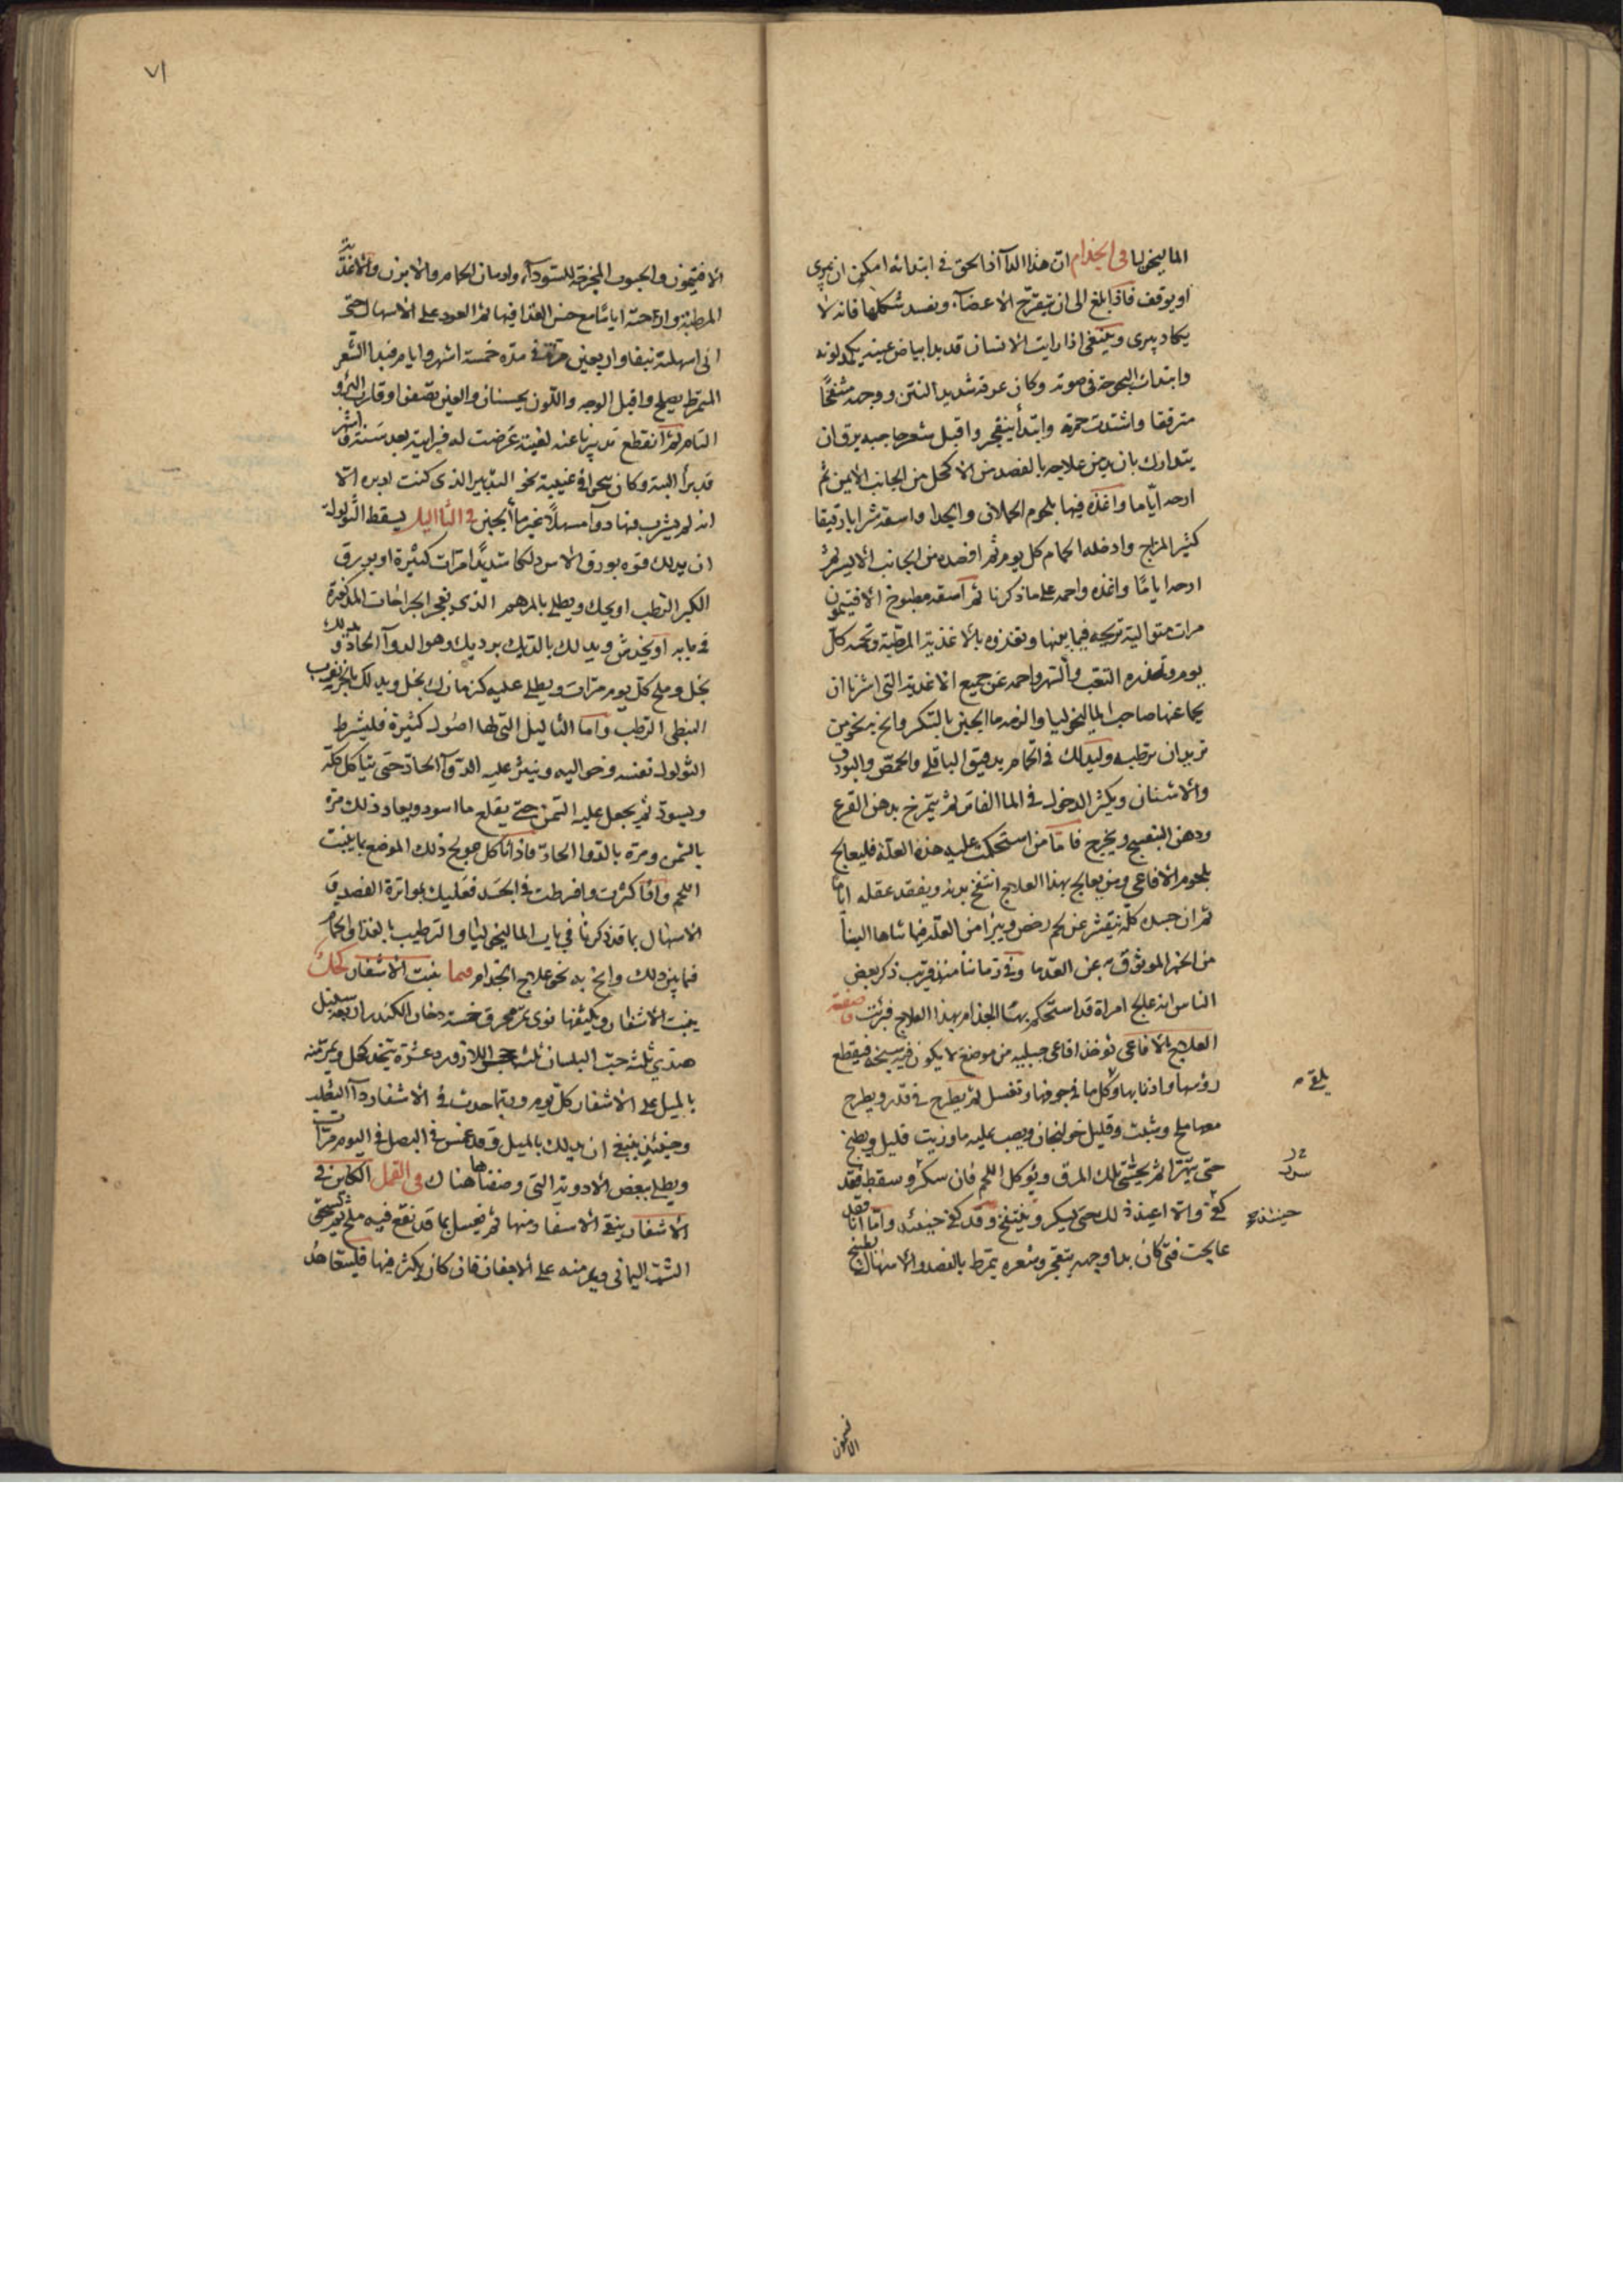 الماليخوليا في الجذام ان هذا الدآ اذا لحق في ابتدائه امكن ان يبرى
او يوقف فاذا بلغ الى ان تتقرح الاعضآء ويفسد شكلها فانه لا
يكاد يبرى وينبغي اذا رايت الانسان قد بدا بياض عينيه يكمد لونه
وابتدات البحوحة في صوته وكان عرقه شديد النتن ووجهه منتفخا
مترققا واشتدت حمرته وابتدأ يتفجر واقبل شعر حاجبيه يرق ان
يتدارك بان يدمن علاجه بالفصد من الاكحل من الجانب الايمن ثم
ارحه ايّاما واغذه فيها بلحوم الحملان والجدا واسقه شرابا رقيقا
كثير المزاج وادخله الحمام كل يوم ثم افصده من الجانب الايسر ثم
ارحه اياما واغذه واحمه على ما ذكرنا ثم اسقه مطبوخ الافتيمون
مرات متوالية تريحه فيما بينها وتغذوه بالاغذية المرطّبة وتحمه كل
يوم وتحذره التعب والسهر واحمه عن جميع الاغذية التي اشرنا ان
يحما عنها صاحب الماليخوليا والزمه ما الجبن بالسكر وانح نحو من
تريد ان ترطبه وليدلك في الحمام بدقيق الباقلي والحمّص والبورق
والاشنان ويكثر الدخول في الما الفاتر ثم يتمرخ بدهن القرع
ودهن البنفسج ويخرج فامّا من استحكمت عليه هذه العلّة فليعالج
بلحوم الافاعي ومن يعالج بهذا العلاج انتفخ بدنه ويفقد عقله اياما
ثم ان جسده كلّه يتقشر عن لحم رخص ويبرا من العلّة فيما تناها الينا
من الخبر الموثوق به عن القدما وفي زماننا منذ قريب ذكر بعض
الناس انه عالج امراة قد استحكم بها الجذام بهذا العلاج فبرئت صفة
العلاج بالافاعي تؤخذ افاعي جبلية من موضع لا يكون فيه سبخة فيقطع
رؤسها واذنابها وكل ما في جوفها وتغسل ثم يطرح في قدر ويطرح
يلقى
معها ملح وشبث وقليل خولنجان ويصب عليه ما وزيت قليل ويطبخ
حتى يتهرّا ثم يحتسّى تلك المرق ويؤكل اللحم فان سكر وسقط فقد
سدر
كفى والّا اعيد ذلك حتى يسكر وينتفخ وقد كفى حينئذ وامّا انا فقد
حينئذ
عالجت فتى كان بدا وجهه يتعجر وشعره يتمرط بالفصد والاسهال بطبيخ
الافتيمون
٧١
الافتيمون والحبوب المخرجة للسودآء وادمان الحمام والابزن والاغذية
المرطبة واراحته اياما مع حسن الغذا فيها ثم العود على الاسهال حتى
اني اسهلته نيفا واربعين مرة في مدّه خمسة اشهر وايام فبدا الشعر
المتمرط يصلح واقبل الوجه واللون يحسنان والعين تصفى وقارب البرؤ
التام ثم انقطع تدبيرنا عنه لغيبة عرضت له فرايته بعد سنتين واشهر
قد برأ البتة وكان ينحو في غيبته نحو التدبير الذي كنت ادبره الّا
انه لم يشرب فيها دوآ مسهلاً غير ما الجبن في الثاآليل يسقط الثولولة
ان يدلك قوه بورق الاس دلكا شديدًا مرات كثيرة او بورق
الكبر الرطب او يحك ويطلى بالمرهم الذي يفجر الجراحات المذكور
في بابه او يخدش ويدلك بالديك برديك وهو الدوآ الحادّ ويدلك
بخل وملح كلّ يوم مرّات ويطلى عليه كزمازك بخل ويدلك بالخرنوب
النبطي الرطب واما الثاليل التي لها اصول كثيرة فليشرط
الثولول نفسه وحواليه وينثر عليه الدّوآ الحادّ حتى يتاكل كلّه
ويسودّ ثم يجعل عليه السّمن حتى يقلع ما اسود ويعاد ذلك مرّه
بالسّمن ومرّه بالدوا الحادّ فاذا تاكل عولج ذلك الموضع بما ينبت
اللحم واذا كثرت وافرطت في الجسد فعليك بمواترة الفصد و
الاسهال بما قد ذكرنا في باب الماليخوليا والترطيب بالغذا والحمام
فيما بين ذلك وانح به نحو علاج الجذام فيما ينبت الاشفار كحل
ينبت الاشفار ويكثفها نوى تمر محرق خمسة دخان الكندر اربعة سنبل
هندي ثلثة حبّ البلسان ثلثة حجر اللازورد عشرة يتخذ كحل ويمرّ منه
بالميل على الاشفار كلّ يوم وربما حدث في الاشفار دآ الثعلب
وحينئذ ينبغي ان يدلك بالميل وقد غمس في البصل في اليوم مرّات
ويطلى ببعض الادوية التي وصفناها هناك في القمل الكائن في
الاشفار ينقى الاشفار منها ثم تغسل بما قد نقع فيه ملح ثم يسحق
الشّب اليماني ويمر منه على الاجفان فان كان يكثر فيها فليتعاهد